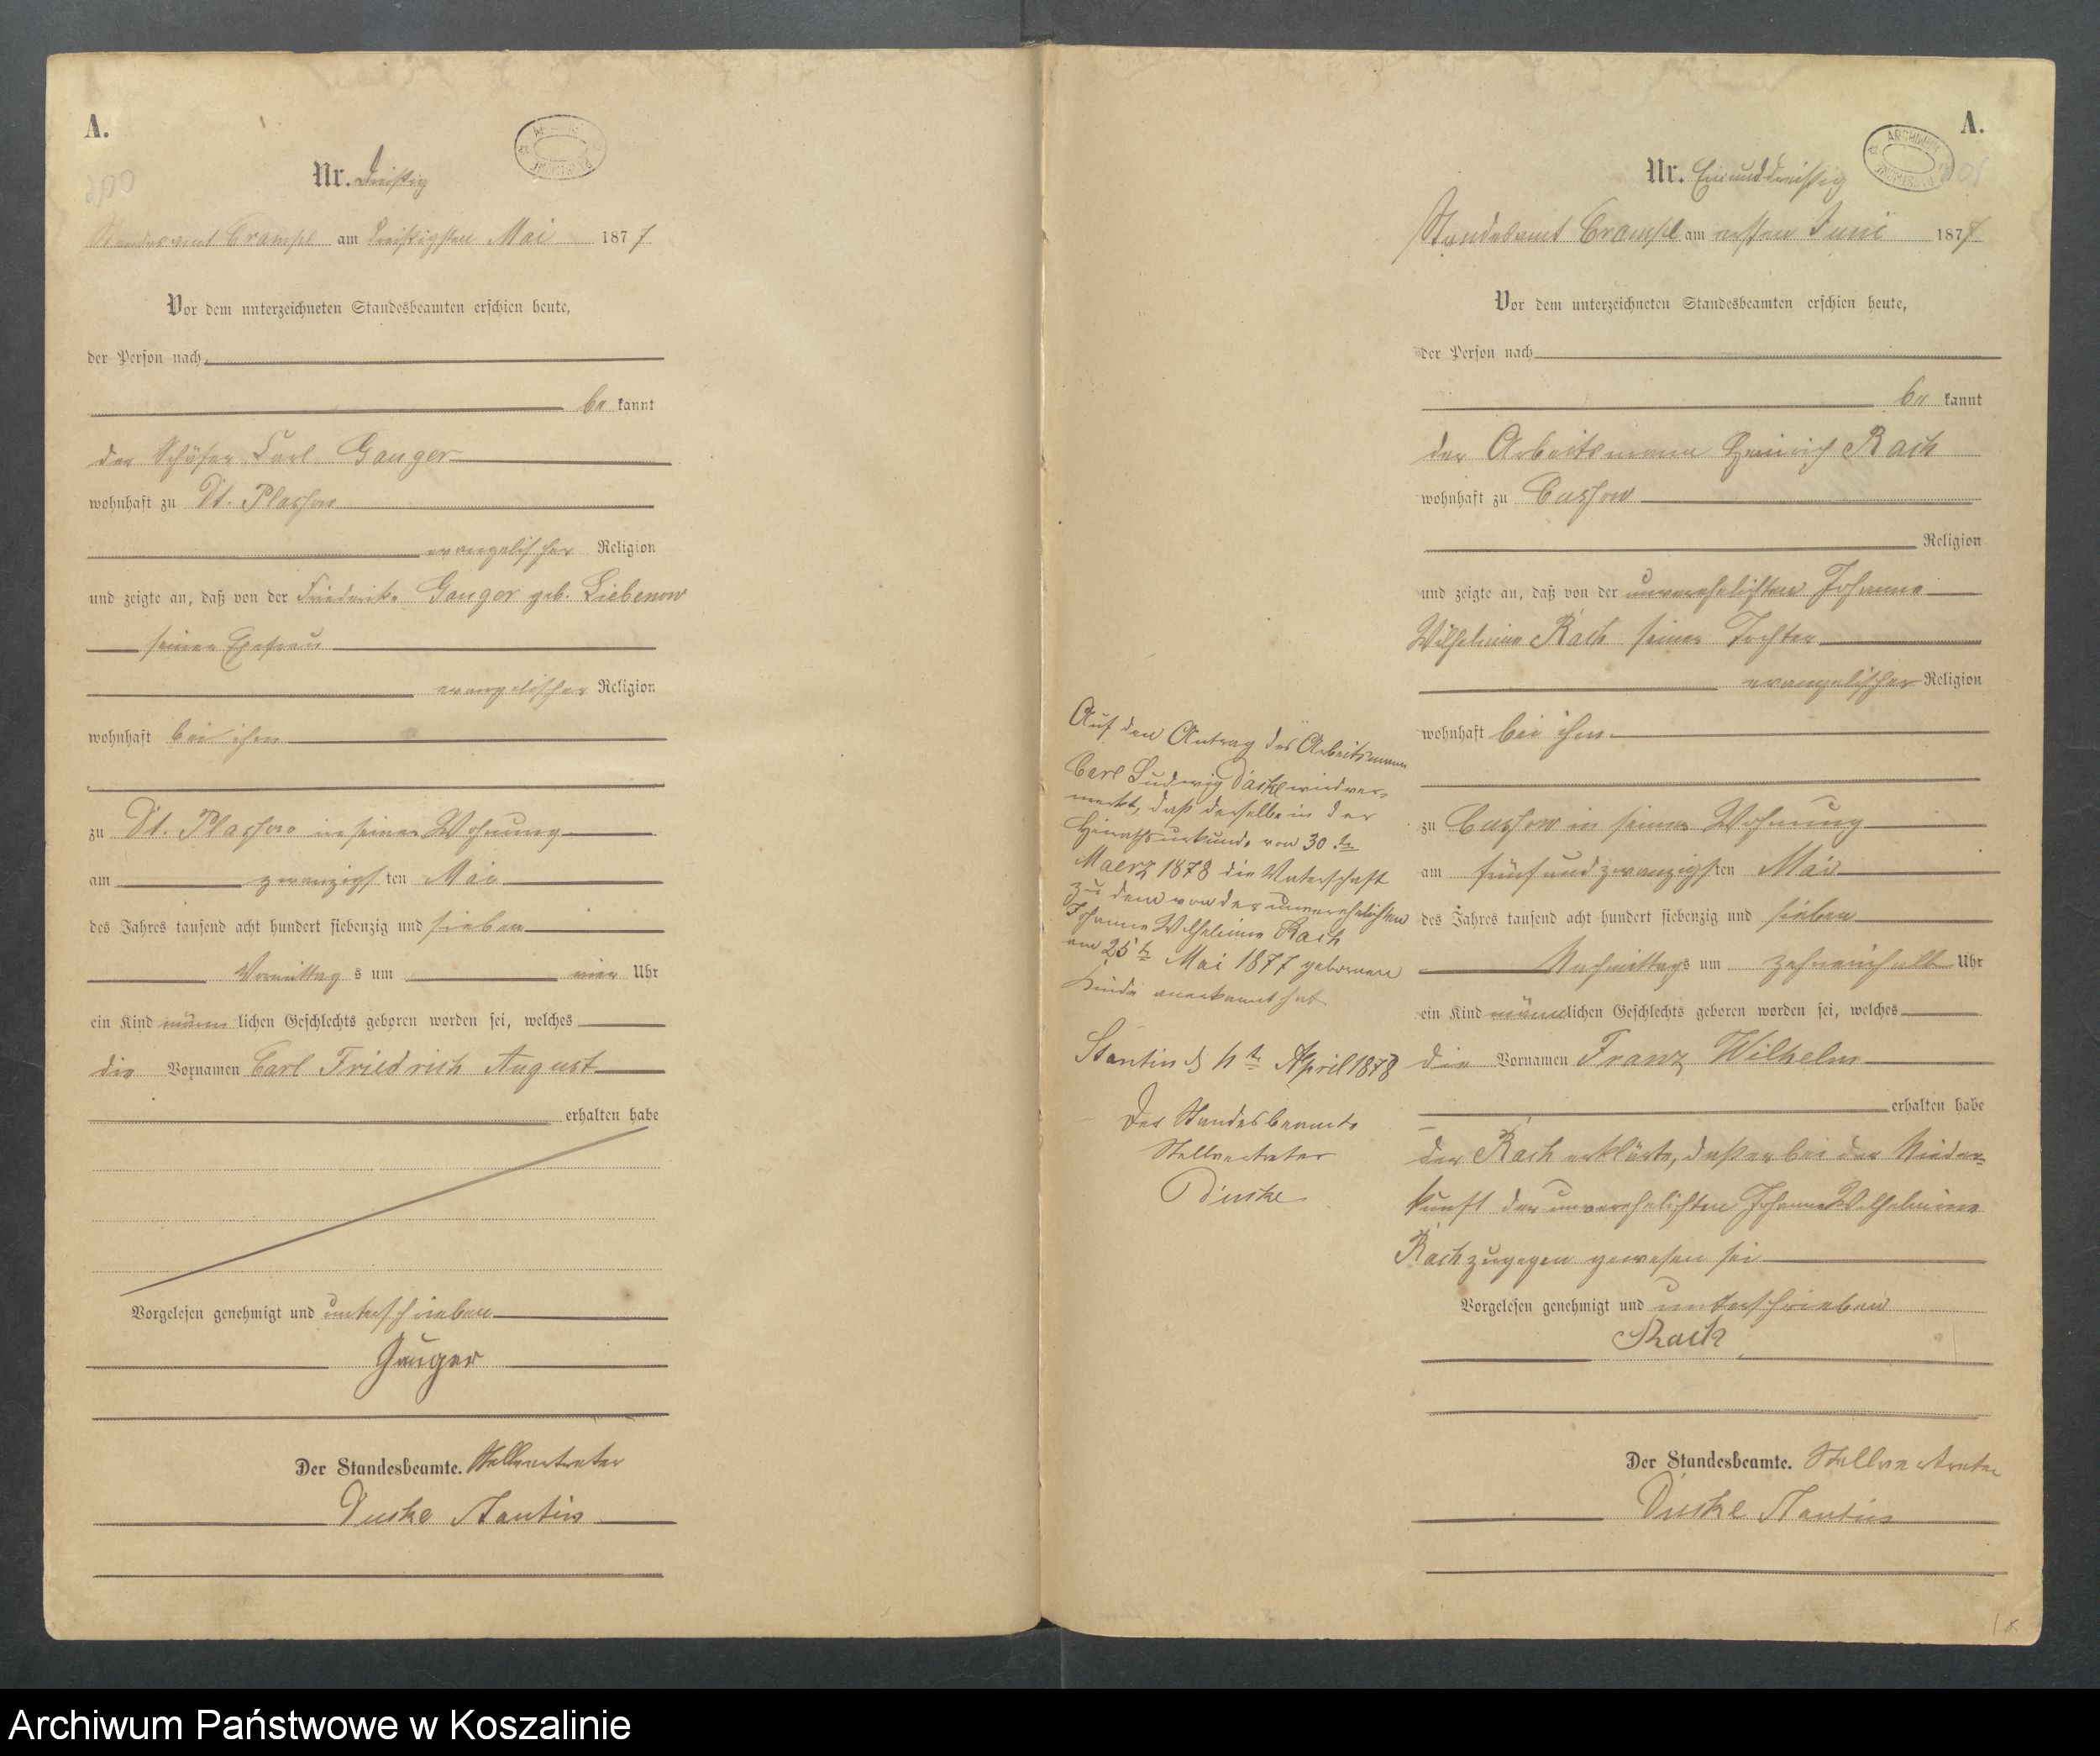 A.
Nr. Dreißig
Standesamt Crampe am dreißigsten Mai 1877.
Vor dem unterzeichneten Standesbeamten erschien heute,
der Person nach
be kannt
der Schäfer Carl Ganger
wohnhaft zu Dt. Plassow
evangelischer Religion
und zeigte an, daß von der Friederike Ganger geb. Liebenow
seiner Ehefrau
evangelischer Religion
wohnhaft bei ihm
zu Dt. Plassow in seiner Wohnung
am zwanzigsten Mai
des Jahres tausend acht hundert siebenzig und sieben
Vormittag s um vier Uhr
ein Kind männlichen Geschlechts geboren worden sei, welches
die Vornamen Carl Friedrich August
erhalten habe
Vorgelesen genehmigt und unterschrieben
Gauger
Der Standesbeamte. Stellvertreter
Duske Stantin
A.
Nr. Einunddreißig
Standesamt Crampe am ersten Juni 1877
Vor dem unterzeichneten Standesbeamten erschien heute,
der Person nach
be kannt
der Arbeitsmann Heinrich Rach
wohnhaft zu Cussow
Religion
und zeigte an, daß von der unverehelichten Johanne
Wilhelmine Rach seiner Tochter
evangelischer Religion
wohnhaft bei ihm
zu Cussow in seiner Wohnung
am fünfundzwanzigsten Mai
des Jahres tausend acht hundert siebenzig und sieben
Nachmittags um zehneinhalb Uhr
ein Kind männlichen Geschlechts geboren worden sei, welches
die Vornamen Franz Wilhelm
erhalten habe
der Rach erklärte, daß er bei der Nieder-
kunft der unverehelichten Johanne Wilhelmine
Rach zugegen gewesen sei
Vorgelesen genehmigt und unterschrieben
Rach
Der Standesbeamte. Stellvertreter
Duske Stantin
Auf den Antrag des Arbeitsmann
Carl Ludwig wird ver-
merkt, daß derselbe in der
Heirathsurkunde vom 30.ten
Maerz 1878 die Vaterschaft
zu dem von der unverehelichten
Johanne Wilhelmine Rach
am 25ten Mai 1877 geborenen
Kinde anerkannt hat
Stantin d 4ten April 1878
Der Standesbeamte
Stellvertreter
Duske
ARCHIWUM
PAŃSTWOWE
Archiwum Państwowe w Koszalinie